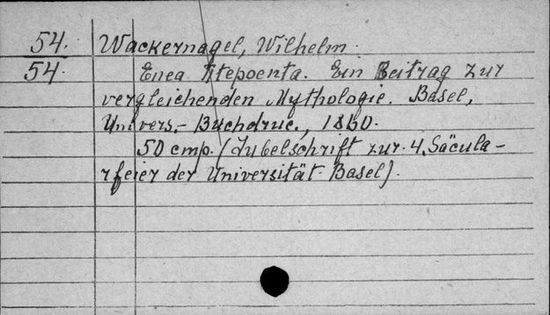 54. Wackernagel, Wilhelm.
54. Enea Ptepoenta. Ein Beitrag zur
vergleichenden Mythologie. Basel,
Univers.- Buchdruc., 1860.
50 cmp. (Jubelschrift zur 4. Säcula-
rfeier der Universität Basel).